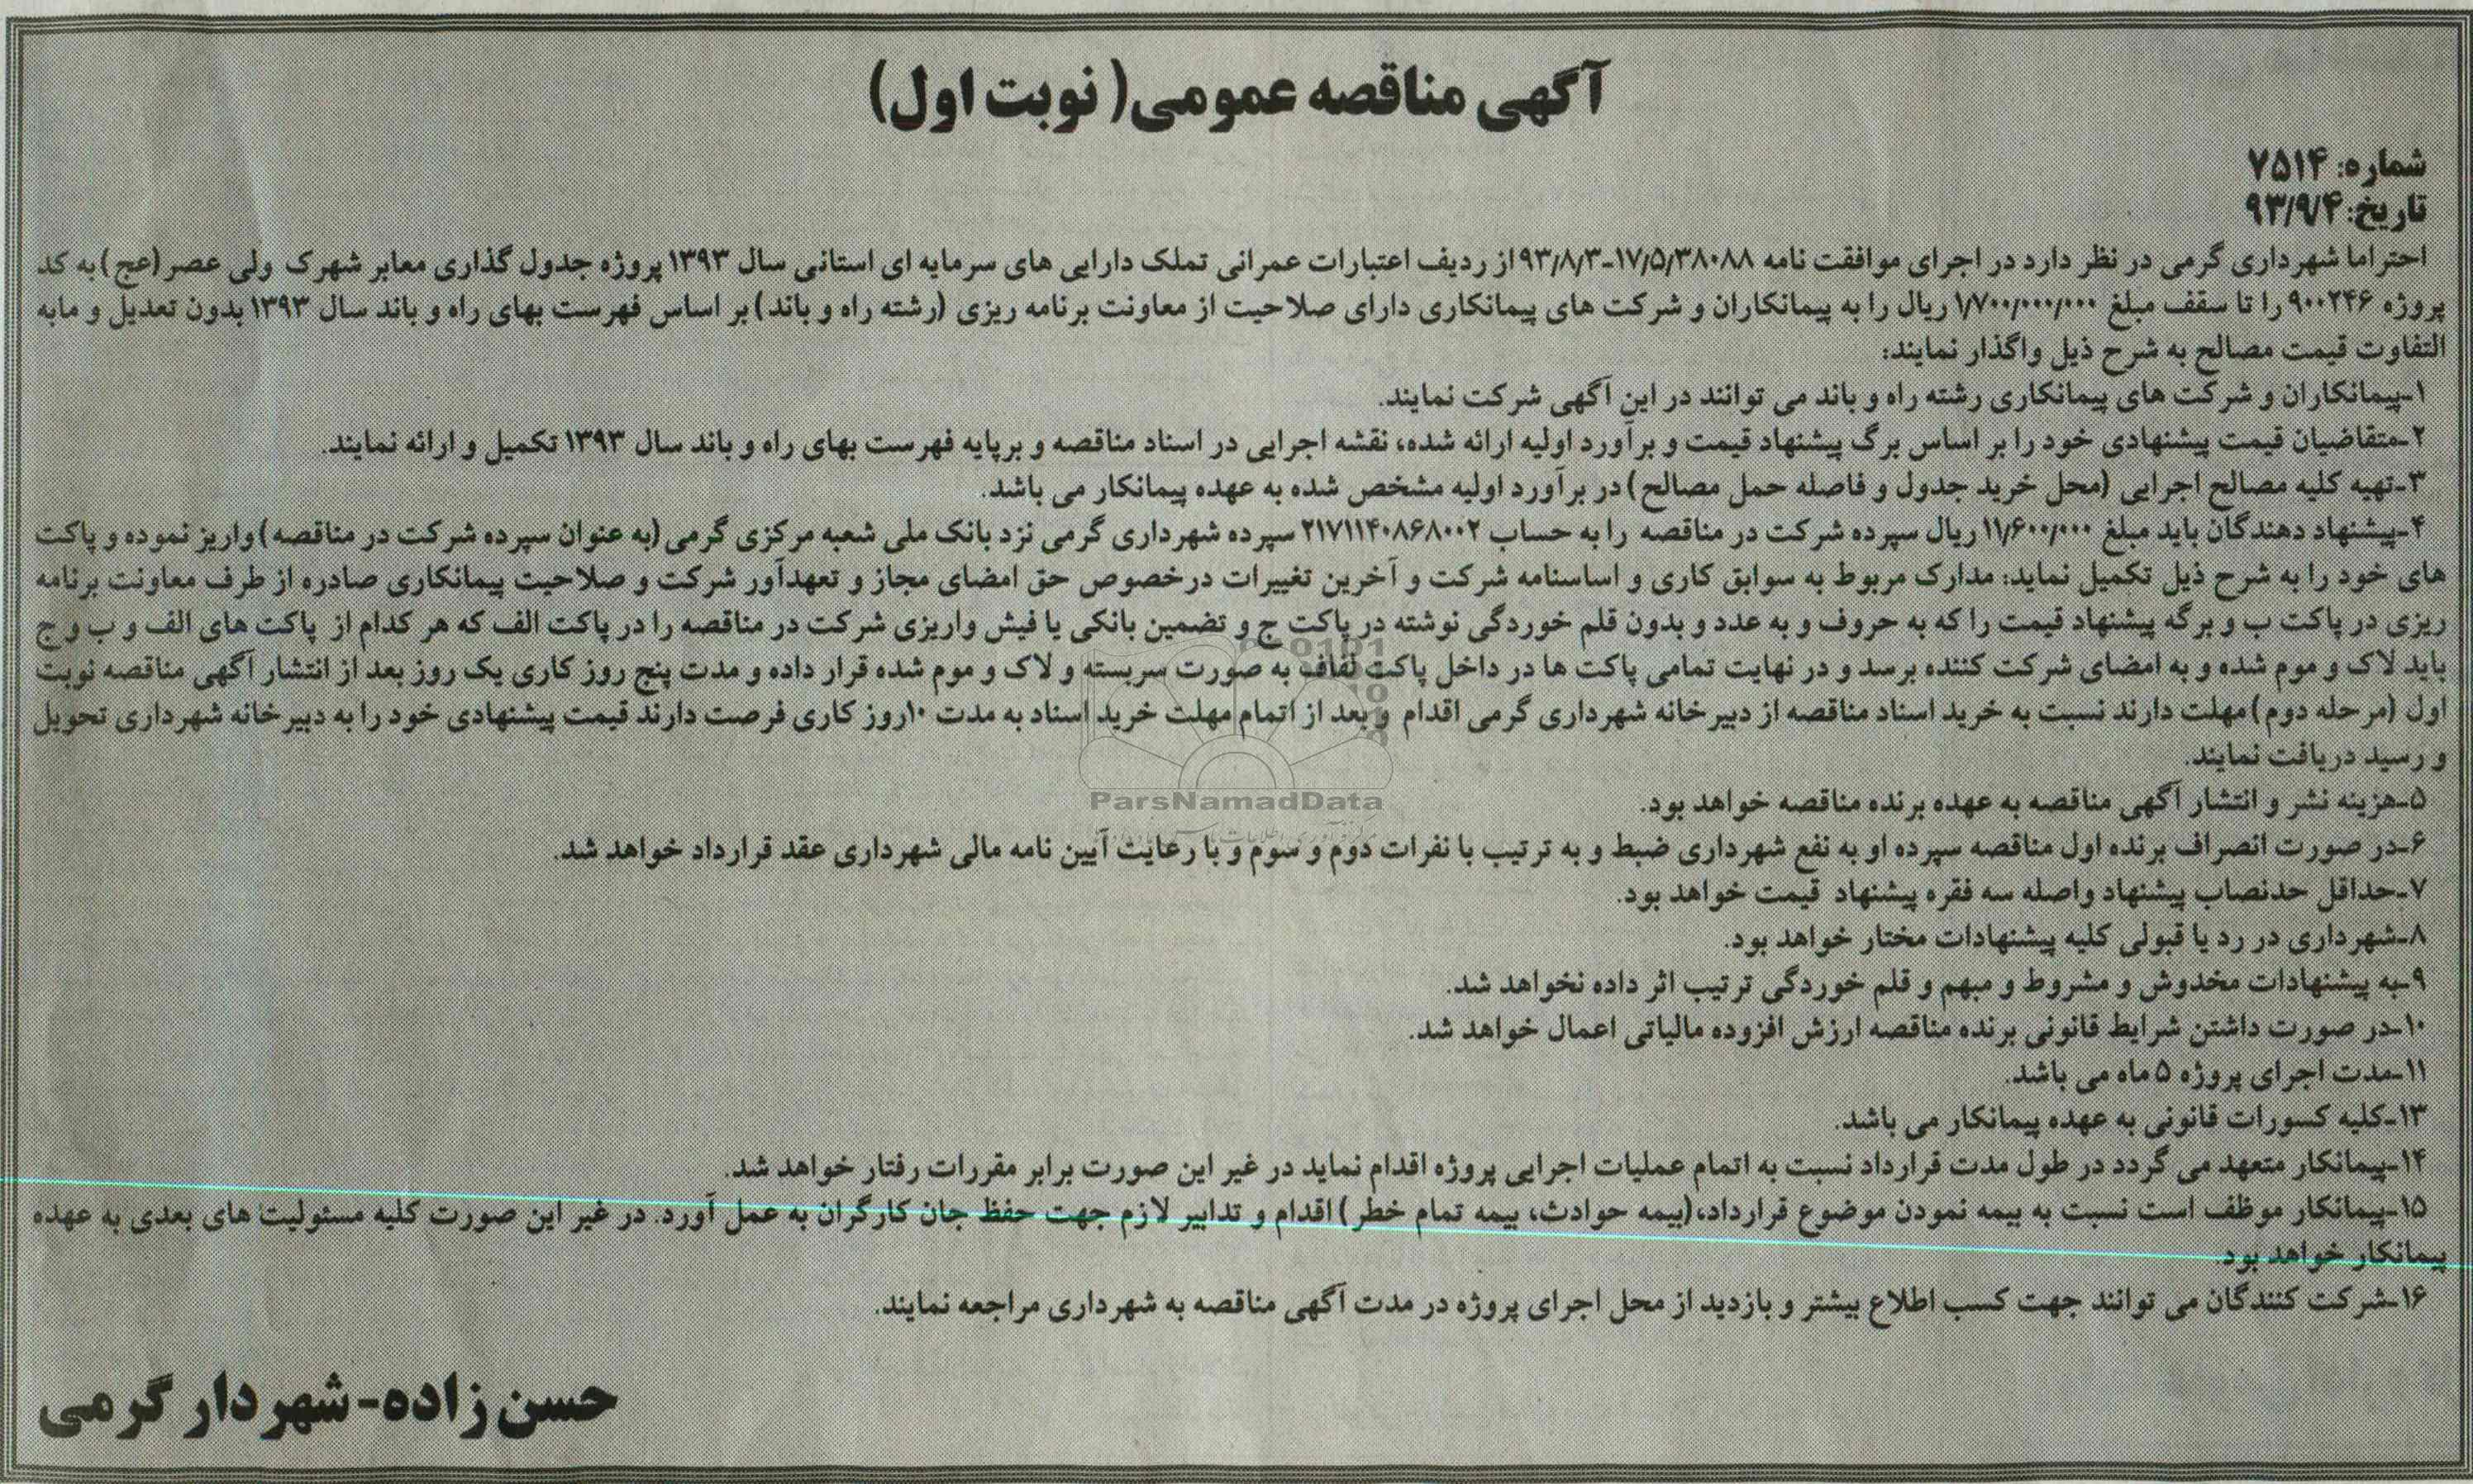 آگهی مناقصه عمومی( نوبت اول)
شماره: ۷۵۱۴
تاریخ: ۹۳/۹/۴
احتراما شهرداری گرمی در نظر دارد در اجرای موافقت نامه ۱۷/۵/۳۸۰۸۸-۹۳/۸/۳ از ردیف اعتبارات عمرانی تملک دارایی های سرمایه ای استانی سال ۱۳۹۳ پروژه جدول گذاری معابر شهرک ولی عصر(عج) به کد
پروژه ۹۰۰۲۴۶ را تا سقف مبلغ ۱/۷۰۰/۰۰۰/۰۰۰ ریال را به پیمانکاران و شرکت های پیمانکاری دارای صلاحیت از معاونت برنامه ریزی (رشته راه و باند) بر اساس فهرست بهای راه و باند سال ۱۳۹۳ بدون تعدیل و مابه
التفاوت قیمت مصالح به شرح ذیل واگذار نمایند:
۱-پیمانکاران و شرکت های پیمانکاری رشته راه و باند می توانند در این آگهی شرکت نمایند.
۲-متقاضیان قیمت پیشنهادی خود را بر اساس برگ پیشنهاد قیمت و برآورد اولیه ارائه شده، نقشه اجرایی در اسناد مناقصه و برپایه فهرست بهای راه و باند سال ۱۳۹۳ تکمیل و ارائه نمایند.
۳-تهیه کلیه مصالح اجرایی (محل خرید جدول و فاصله حمل مصالح) در برآورد اولیه مشخص شده به عهده پیمانکار می باشد.
۴-پیشنهاد دهندگان باید مبلغ ۱۱/۶۰۰/۰۰۰ ریال سپرده شرکت در مناقصه را به حساب ۲۱۷۱۱۴۰۸۶۸۰۰۲ سپرده شهرداری گرمی نزد بانک ملی شعبه مرکزی گرمی (به عنوان سپرده شرکت در مناقصه) واریز نموده و پاکت
های خود را به شرح ذیل تکمیل نماید: مدارک مربوط به سوابق کاری و اساسنامه شرکت و آخرین تغییرات درخصوص حق امضای مجاز و تعهدآور شرکت و صلاحیت پیمانکاری صادره از طرف معاونت برنامه
ریزی در پاکت ب و برگه پیشنهاد قیمت را که به حروف و به عدد و بدون قلم خوردگی نوشته در پاکت ج و تضمین بانکی یا فیش واریزی شرکت در مناقصه را در پاکت الف که هر کدام از پاکت های الف و ب و ج
باید لاک و موم شده و به امضای شرکت کننده برسد و در نهایت تمامی پاکت ها در داخل پاکت لفاف به صورت سربسته و لاک و موم شده قرار داده و مدت پنج روز کاری یک روز بعد از انتشار آگهی مناقصه نوبت
اول (مرحله دوم) مهلت دارند نسبت به خرید اسناد مناقصه از دبیرخانه شهرداری گرمی اقدام و بعد از اتمام مهلت خرید اسناد به مدت ۱۰روز کاری فرصت دارند قیمت پیشنهادی خود را به دبیرخانه شهرداری تحویل
و رسید دریافت نمایند.
ParsNamadData
۵-هزینه نشر و انتشار آگهی مناقصه به عهده برنده مناقصه خواهد بود.
۶-در صورت انصراف برنده اول مناقصه سپرده او به نفع شهرداری ضبط و به ترتیب با نفرات دوم و سوم و با رعایت آیین نامه مالی شهرداری عقد قرارداد خواهد شد.
۷-حداقل حدنصاب پیشنهاد واصله سه فقره پیشنهاد قیمت خواهد بود.
۸-شهرداری در رد یا قبولی کلیه پیشنهادات مختار خواهد بود.
۹-به پیشنهادات مخدوش و مشروط و مبهم و قلم خوردگی ترتیب اثر داده نخواهد شد.
۱۰-در صورت داشتن شرایط قانونی برنده مناقصه ارزش افزوده مالیاتی اعمال خواهد شد.
۱۱-مدت اجرای پروژه ۵ ماه می باشد.
۱۳-کلیه کسورات قانونی به عهده پیمانکار می باشد.
۱۴-پیمانکار متعهد می گردد در طول مدت قرارداد نسبت به اتمام عملیات اجرایی پروژه اقدام نماید در غیر این صورت برابر مقررات رفتار خواهد شد.
۱۵-پیمانکار موظف است نسبت به بیمه نمودن موضوع قرارداد،(بیمه حوادث، بیمه تمام خطر) اقدام و تدابیر لازم جهت حفظ جان کارگران به عمل آورد. در غیر این صورت کلیه مسئولیت های بعدی به عهده
پیمانکار خواهد بود.
۱۶-شرکت کنندگان می توانند جهت کسب اطلاع بیشتر و بازدید از محل اجرای پروژه در مدت آگهی مناقصه به شهرداری مراجعه نمایند.
حسن زاده-شهردار گرمی